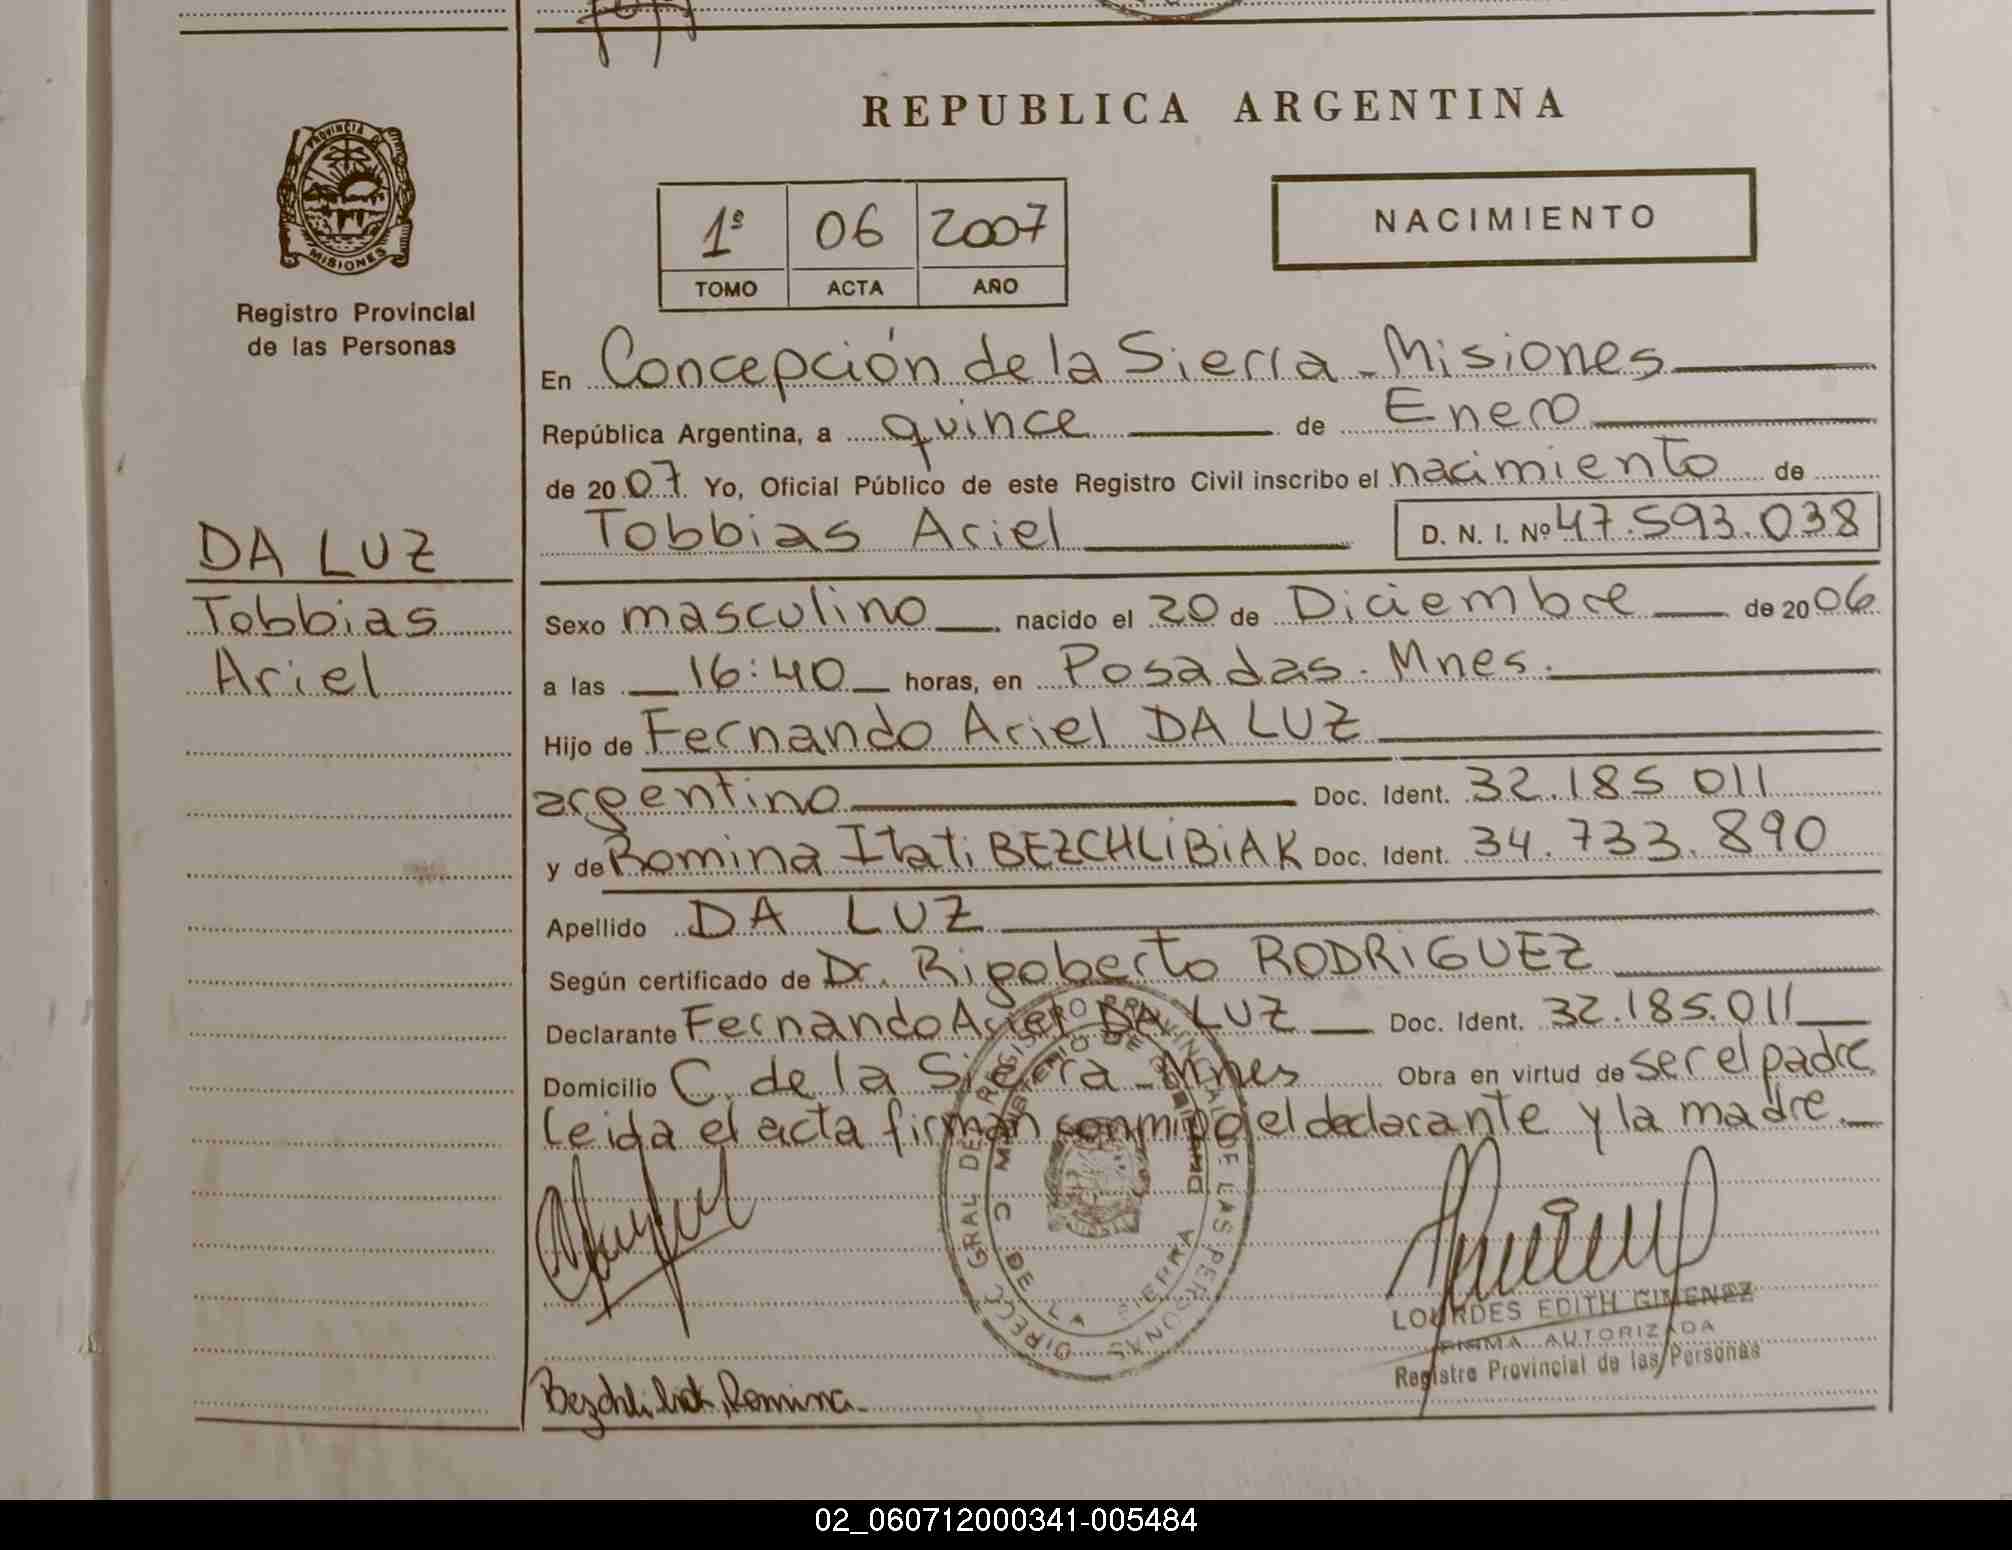 REPUBLICA ARGENTINA
PROVINCIA DE MISIONES
Registro Provincial
de las Personas
1º 06 2007
TOMO ACTA AÑO
NACIMIENTO
DA LUZ
Tobbias
Ariel
En Concepción de la Sierra - Misiones
República Argentina, a quince de Enero
de 2007 Yo, Oficial Público de este Registro Civil inscribo el nacimiento de
Tobbias Ariel D. N. I. Nº 47.593.038
Sexo masculino nacido el 20 de Diciembre de 2006
a las 16:40 horas, en Posadas. Mnes.
Hijo de Fernando Ariel DA LUZ
argentino Doc. Ident. 32.185 011
y de Romina Itati BEZCHLIBIAK Doc. Ident. 34.733.890
Apellido DA LUZ
Según certificado de Dr. Rigoberto RODRIGUEZ
Declarante Fernando Ariel DA LUZ Doc. Ident. 32.185.011
Domicilio C. de la Sierra - Mnes Obra en virtud de ser el padre
Leida el acta firman conmigo el declarante y la madre.
DIRECC GRAL DEL REGISTRO PROVINCIAL DE LAS PERSONAS
C DE LA SIERRA
LOURDES EDITH GIMENEZ
FIRMA AUTORIZADA
Registro Provincial de las Personas
Bezchlibiak, Romina
02_060712000341-005484